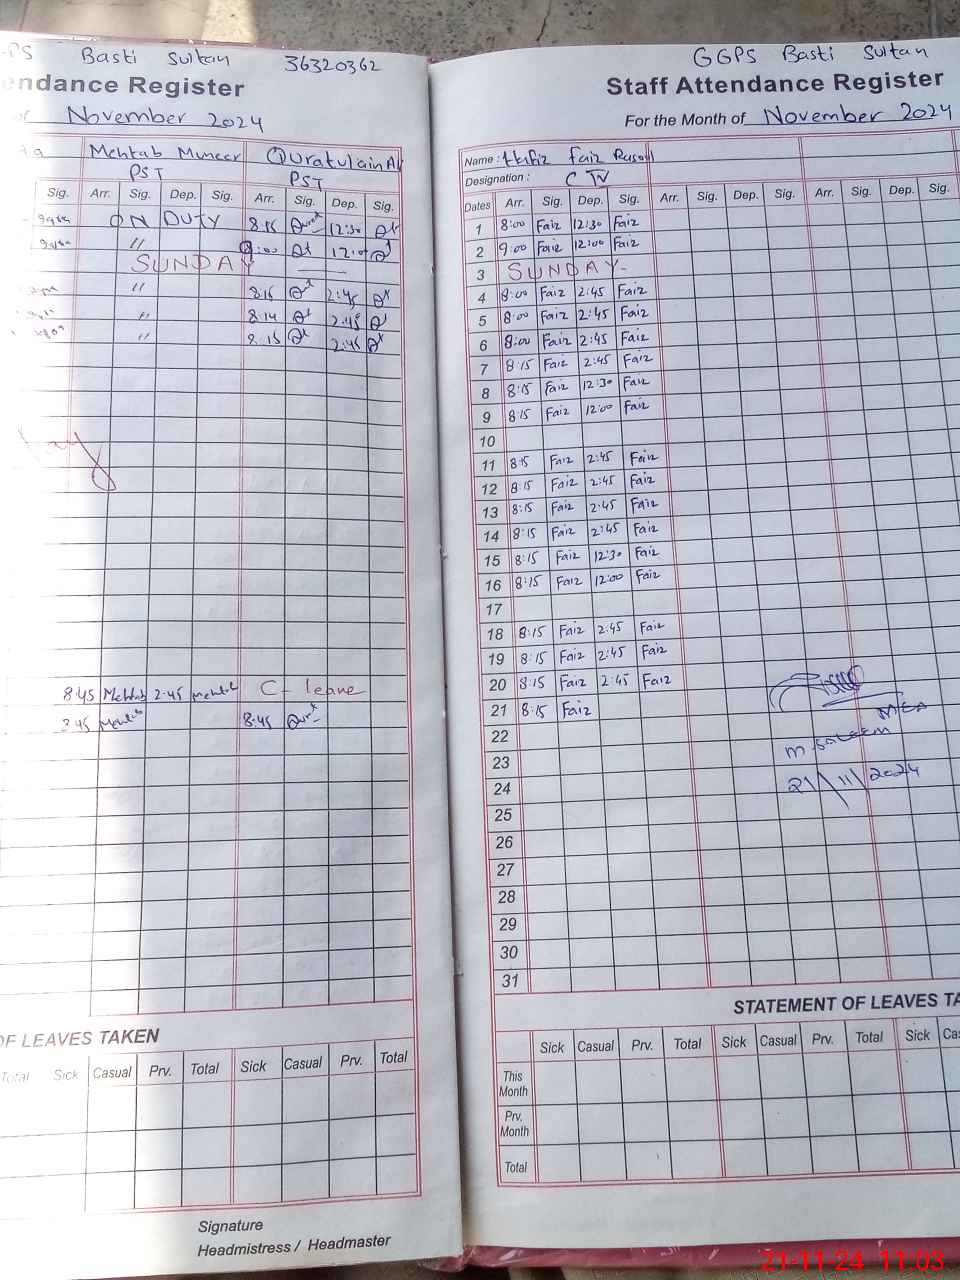 Basti Sultan 36320362
endance Register
November 2024
Mehtab Muneer Quratulain
PST PST
Sig. Arr. Sig. Dep. Sig. Arr. Sig. Dep. Sig.
ON DUTY 8:15 12:30
" 9:00 12:00
SUNDAY
" 8:15 2:45
" 8:14 2:45
" 8:15 2:45
8:45 Mehtab 2:45 Mehtab C- leave
8:45
OF LEAVES TAKEN
Total Sick Casual Prv. Total Sick Casual Prv. Total
Signature
Headmistress / Headmaster
GGPS Basti Sultan
Staff Attendance Register
For the Month of November 2024
Name : Hafiz Faiz Rasool
Designation :
Dates Arr. Sig. Dep. Sig. Arr. Sig. Dep. Sig. Arr. Sig. Dep. Sig.
1 8:00 Faiz 12:30 Faiz
2 9:00 Faiz 12:00 Faiz
3 SUNDAY-
4 8:00 Faiz 2:45 Faiz
5 8:00 Faiz 2:45 Faiz
6 8:00 Faiz 2:45 Faiz
7 8:15 Faiz 2:45 Faiz
8 8:15 Faiz 12:30 Faiz
9 8:15 Faiz 12:00 Faiz
10
11 8:15 Faiz 2:45 Faiz
12 8:15 Faiz 2:45 Faiz
13 8:15 Faiz 2:45 Faiz
14 8:15 Faiz 2:45 Faiz
15 8:15 Faiz 12:30 Faiz
16 8:15 Faiz 12:00 Faiz
17
18 8:15 Faiz 2:45 Faiz
19 8:15 Faiz 2:45 Faiz
20 8:15 Faiz 2:45 Faiz
21 8:15 Faiz
22
23
24
25
26
27
28
29
30
31
M Saleem MEA
21/11/2024
STATEMENT OF LEAVES TA
Sick Casual Prv. Total Sick Casual Prv. Total Sick Ca
This Month
Prv. Month
Total
21-11-24 11:03